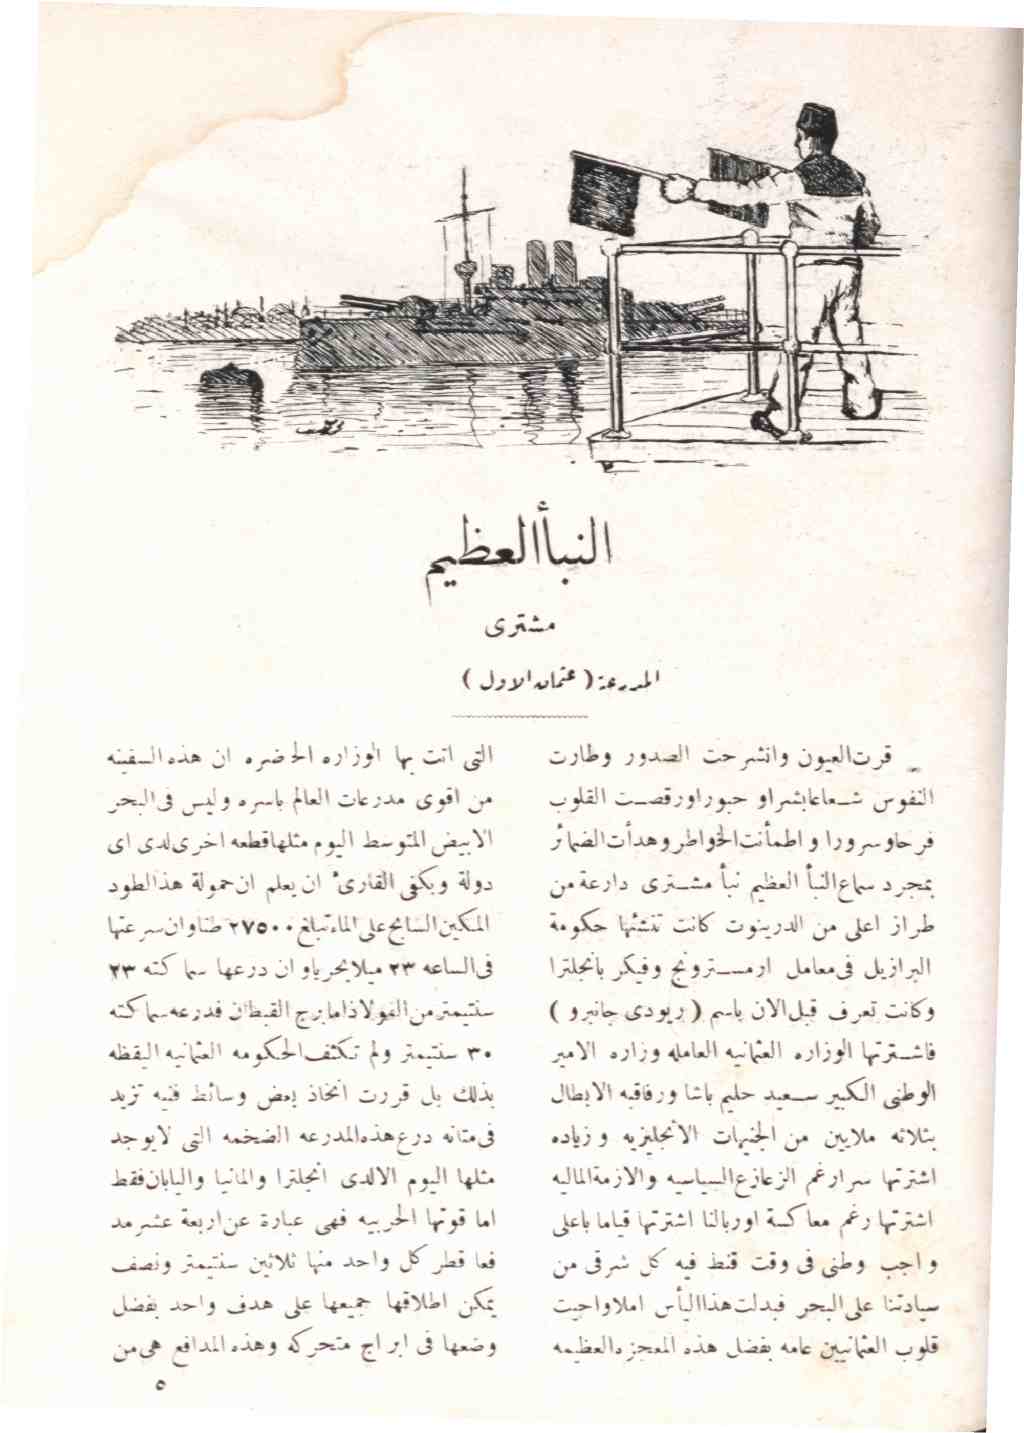 النبأ العظيم
مشترى
المدرعة ( عثمان الاول )
قرت العيون وانشرحت الصدور وطارت
النفوس شعاعا بشرا و حبورا ورقصت القلوب
فرحا وسرورا واطمأنت الخواطر وهدأت الضمائر
بمجرد سماع النبأ العظيم نبأ مشترى دارعة من
طراز اعلى من الدرينوت كانت تنشئها حكومة
البرازيل فى معامل ارمسترونج وفيكر بانجلترا
وكانت تعرف قبل الان باسم ( ريودى جانيرو )
فاشترتها الوزاره العثمانيه العامله وزاره الامير
الوطنى الكبير سعيد حليم باشا ورفاقيه الابطال
بثلاثه ملايين من الجنيهات الانجليزيه و زياده
اشترتها سرا رغم الزعازع السياسيه والازمة الماليه
اشترتها رغم معاكسة اوربالنا اشترتها قياما باعلى
واجب وطنى فى وقت قنط فيه كل شرقى من
سيادتنا على البحر فبدلت هذا اليأس املا واحيت
قلوب العثمانيين عامه بفضل هذه المعجزه العظيمه
التى اتت بها الوزاره الحاضره ان هذه السفينه
من اقوى مدرعات العالم باسره وليس فى البحر
الابيض المتوسط اليوم مثلها قطعه اخرى لدى اى
دولة ويكفى القارئ ان يعلم ان حمولة هذ الطود
المكين السابح على الماء تبلغ ٢٧٥٠٠ طنا وان سرعتها
فى الساعه ٢٣ ميلا بحريا و ان درعها سماكته ٢٣
سنتيمتر من الفولاذ اما برج القبطان فدرعه سماكته
٣٠ سنتيمتر ولم تكتف الحكومه العثمانيه اليقظه
بذلك بل قررت اتخاذ بعض وسائط فنيه تزيد
فى متانه درع هذه المدرعه الضخمه التى لايوجد
مثلها اليوم الالدى انجلترا والمانيا واليابان فقط
اما قوتها الحربيه فهى عبارة عن اربعة عشر مد
فعا قطر كل واحد منها ثلاثين سنتيمتر ونصف
يمكن اطلاقها جميعها على هدف واحد بفضل
وضعها فى ابراج متحركه وهذه المدافع هى من
٥